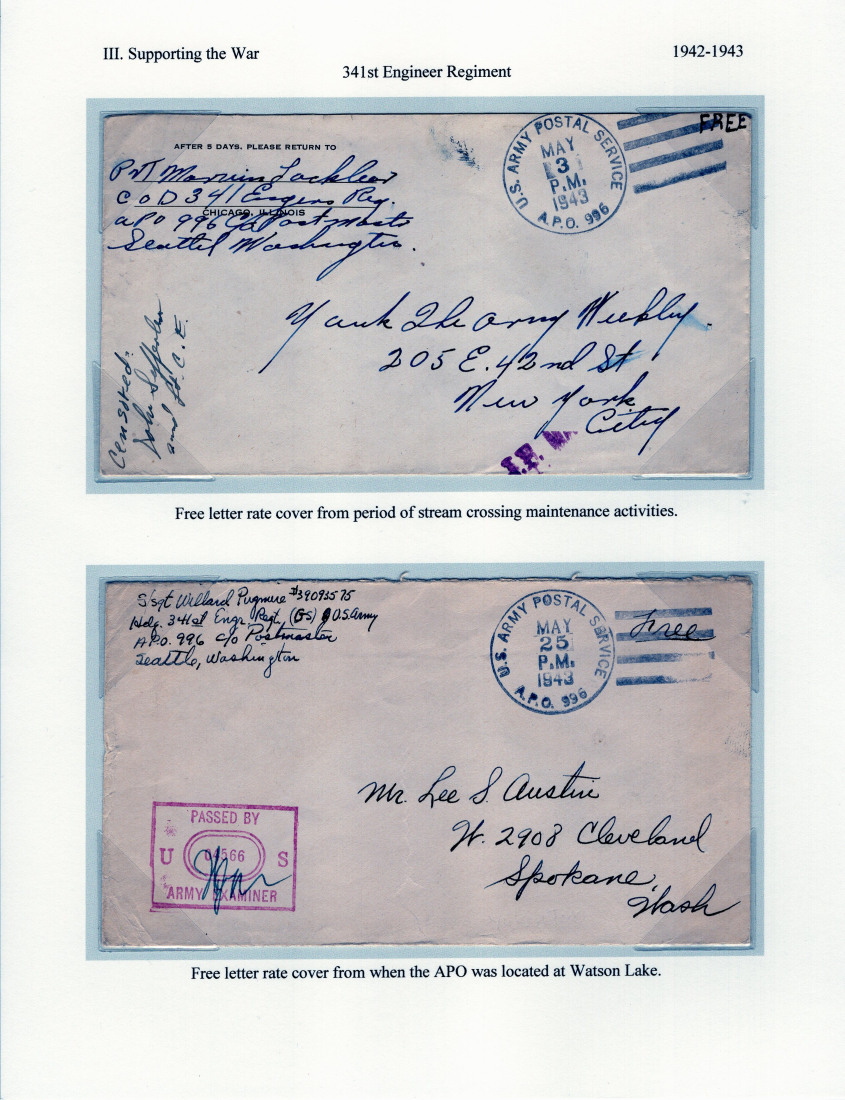 III. Supporting the War 1942-1943
341st Engineer Regiment
AFTER 5 DAYS, PLEASE RETURN TO
Pvt Marvin Locklear
Co D 341 Engers Reg.
CHICAGO, ILLINOIS
APO 996 C/o Postmasts
Seattel Washington.
U.S. ARMY POSTAL SERVICE
MAY
3
P.M.
1943
A.P.O. 996
FREE
Yank The Army Weekly.
205 E. 42nd St
New York
City
Censored:
John
2nd Lt. C.E.
Free letter rate cover from period of stream crossing maintenance activities.
S/sgt Willard Pugmire #39093575
Hdq. 341st Engr. Regt, (GS) U.S. Army
A.P.O. 996 c/o Postmaster
Seattle, Washington
U.S. ARMY POSTAL SERVICE
MAY
25
P.M.
1943
A.P.O. 996
Free
Mr. Lee S. Austin
W. 2908 Cleveland
Spokane,
Wash
PASSED BY
U 04566 S
ARMY EXAMINER
Free letter rate cover from when the APO was located at Watson Lake.